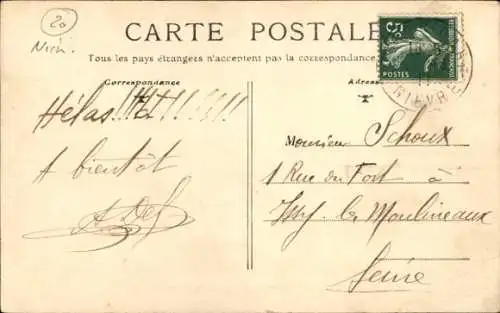 20
CARTE POSTALE
Tous les pays étrangers n'acceptent pas la correspondance
Correspondance
Adresse
5
POSTES
Hélas!!! Et!!!!!!
A bientôt
Monsieur Schoux
1 Rue du Fort à
Issy les Moulineaux
Seine